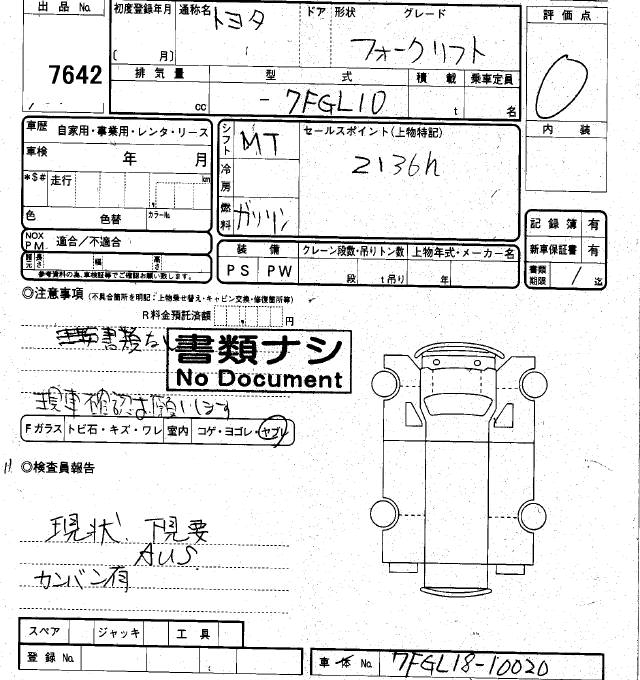 出品 No. 初度登録年月 通称名 トヨタ ドア 形状 グレード 評価点
7642 〔 月〕 フォークリフト 0
排気量 型式 積載 乗車定員
cc - 7FGL10 t 名
内装
車歴 自家用・事業用・レンタ・リース シフト MT セールスポイント(上物特記)
車検 年 月 冷房 2136h
*$# 走行 km
色 色替 カラーNo. 燃料 ガソリン
記録簿 有
NOX PM 適合/不適合 装備 クレーン段数・吊りトン数 上物年式・メーカー名 新車保証書 有
長さ 幅 高さ PS PW 段 t吊り 年 書類期限 / 迄
参考資料の為、車検証等でご確認お願い致します。
◎注意事項 (不具合箇所を明記:上物乗せ替え・キャビン交換・修復箇所等)
R料金預託済額 円
書類なし
書類ナシ
No Document
現車確認お願いします
Fガラス トビ石・キズ・ワレ 室内 コゲ・ヨゴレ・ヤブレ
◎検査員報告
現状、下見要
AUS
カンバン有
スペア ジャッキ 工具
登録 No. 車体 No. 7FGL18-10020